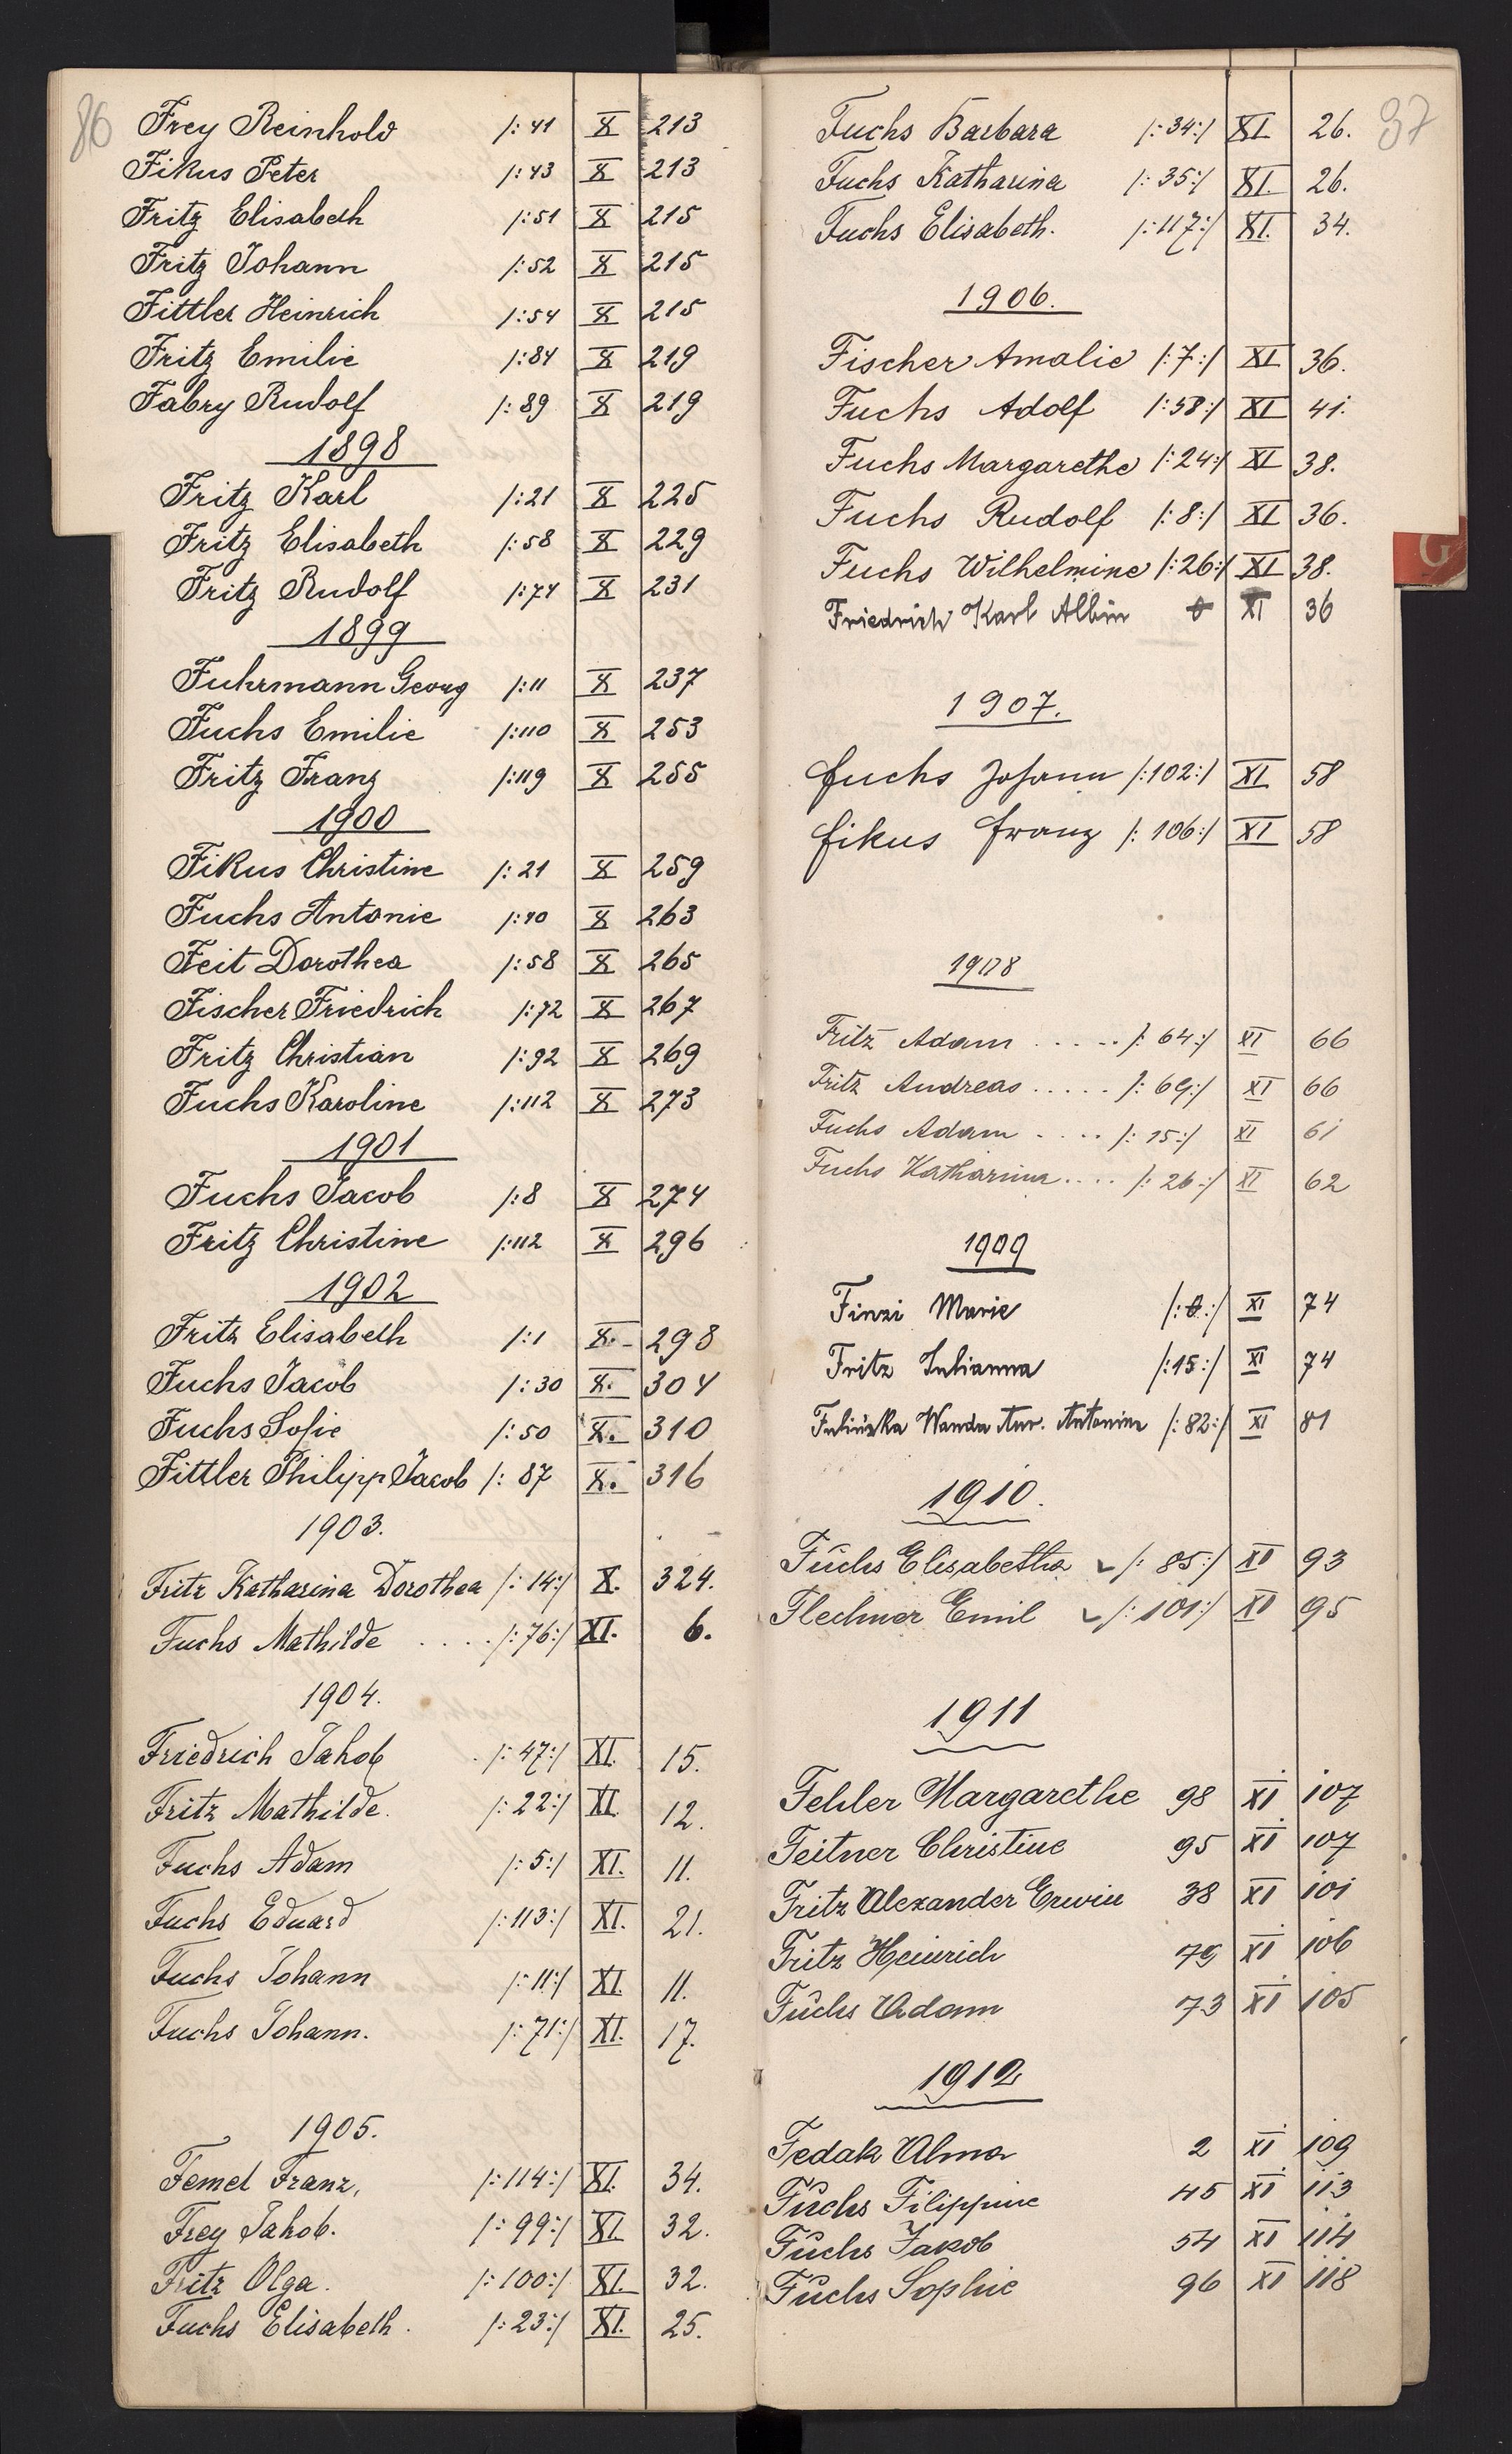 86
Frey Reinhold /:41 X 213
Fikus Peter /:43 X 213
Fritz Elisabeth /:51 X 215
Fritz Johann /:52 X 215
Fittler Heinrich /:54 X 215
Fritz Emilie /:84 X 219
Fabry Rudolf /:89 X 219
1898
Fritz Karl /:21 X 225
Fritz Elisabeth /:58 X 229
Fritz Rudolf /:74 X 231
1899
Fuhrmann Georg /:11 X 237
Fuchs Emilie /:110 X 253
Fritz Franz /:119 X 255
1900
Fikus Christine /:21 X 259
Fuchs Antonie /:40 X 263
Feit Dorothea /:58 X 265
Fischer Friedrich /:72 X 267
Fritz Christian /:92 X 269
Fuchs Karoline /:112 X 273
1901
Fuchs Jacob /:8 X 274
Fritz Christine /:112 X 296
1902
Fritz Elisabeth /:1 X. 298
Fuchs Jacob /:30 X. 304
Fuchs Sofie /:50 X. 310
Fittler Philipp Jacob /: 87 X. 316
1903.
Fritz Katharina Dorothea /: 14:/ X. 324.
Fuchs Mathilde . . . . /:76:/ XI. 6.
1904.
Friedrich Jakob /: 47:/ XI. 15.
Fritz Mathilde. /: 22:/ XI. 12.
Fuchs Adam /: 5:/ XI. 11.
Fuchs Eduard /:113:/ XI. 21.
Fuchs Johann /: 11:/ XI. 11.
Fuchs Johann. /: 71:/ XI. 17.
1905.
Femel Franz, /:114:/ XI. 34.
Frey Jakob. /: 99:/ XI. 32.
Fritz Olga. /: 100:/ XI. 32.
Fuchs Elisabeth. /: 23:/ XI. 25.
37
Fuchs Barbara /:34:/ XI. 26.
Fuchs Katharina /: 35:/ XI. 26.
Fuchs Elisabeth. /:117:/ XI. 34.
1906.
Fischer Amalie /:7:/ XI 36.
Fuchs Adolf /:58:/ XI 41.
Fuchs Margarethe /:24:/ XI 38.
Fuchs Rudolf /:8:/ XI 36.
Fuchs Wilhelmine /:26:/ XI 38.
Friedrich Karl Albin XI 36
G
1907.
Fuchs Johann /:102:/ XI 58
Fikus Franz /: 106:/ XI 58
1908
Fritz Adam . . . . . /: 64:/ XI 66
Fritz Andreas . . . . . /: 69:/ XI 66
Fuchs Adam . . . . /: 15:/ XI 61
Fuchs Katharina . . . . /: 26:/ XI 62
1909
Finzi Marie XI 74
Fritz Julianna /:15:/ XI 74
Wanda Antonina /: 82:/ XI 81
1910.
Fuchs Elisabetha /: 85:/ XI 93
Flechner Emil /: 101:/ XI 95
1911
Fehler Margarethe 98 XI 107
Feitner Christine 95 XI 107
Fritz Alexander Erwin 38 XI 101
Fritz Heinrich 79 XI 106
Fuchs Adam 73 XI 105
1912
Fedak Alma 2 XI 109
Fuchs Filippine 45 XI 113
Fuchs Jakob 54 XI 114
Fuchs Sophie 96 XI 118